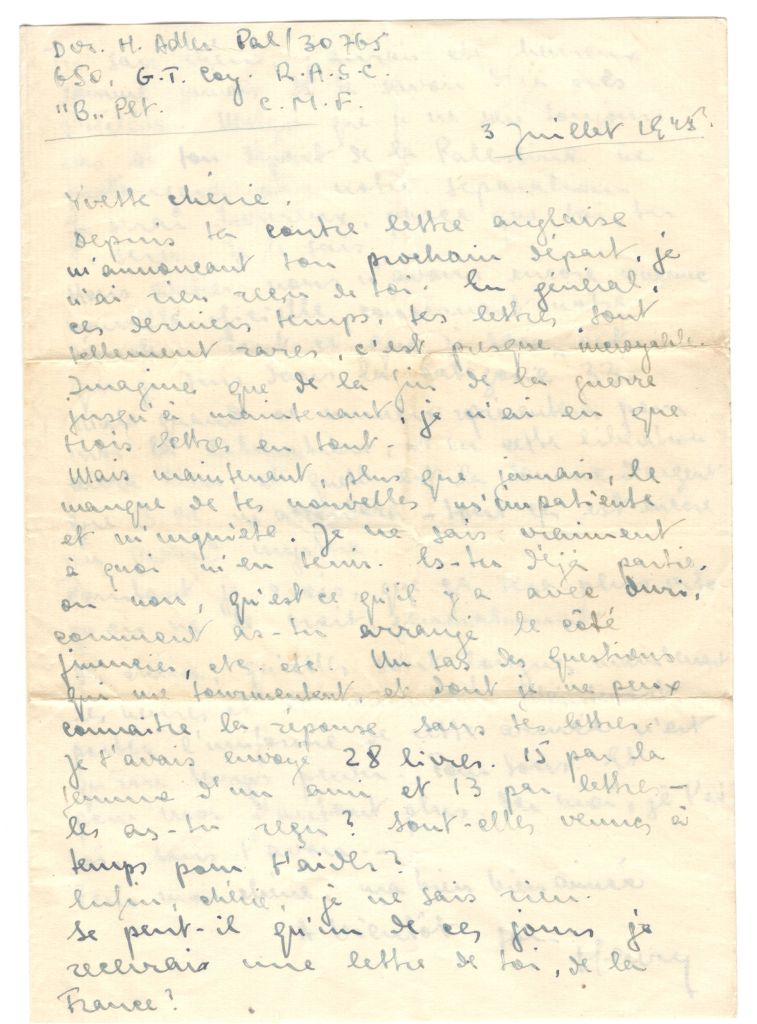 Dvr. H. Adler Pal/30765
650, G.T. Coy. R.A.S.C.
"B„ Plt. C.M.F.
3 Juillet 1945.
Yvette chérie.
Depuis ta contre lettre anglaise
m'annoncant ton prochain départ, je
n'ai rien reçu de toi. En général,
ces derniers temps, tes lettres sont
tellement rares, c'est presque incroyable.
Imagine que de la fin de la guerre
jusqu'à maintenant, je n'ai eu que
trois lettres en tout.
Mais maintenant, plus que jamais, le
manque de tes nouvelles m'impatiente
et m'inquiète. Je ne sais vraiment
à quoi m'en tenir. Es-tu déjà partie,
ou non, qu'est ce qu'il y a avec
comment as-tu arrangé le côté
financier, etc. etc. Un tas des questions
qui me tourmentent, et dont je ne peux
connaitre la réponse sans tes lettres.
Je t'avais envoyé 28 livres. 15 par la
femme d'un ami et 13 par lettres -
les as-tu reçu? Sont-elles venues à
temps pour t'aider?
Enfin, chérie, je ne sais rien.
Se peut-il qu'un de ces jours je
recevrais une lettre de toi, de la
France?